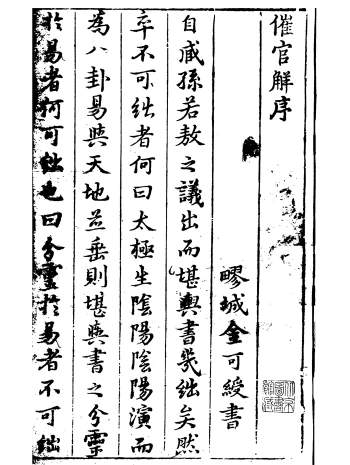 催官解序
鄝城金可綬書
自臧孫若敖之議出而堪輿書幾絀矣然
卒不可絀者何曰太極生陰陽陰陽演而
為八卦易與天地並垂則堪輿書之分靈
於易者何可絀也曰分靈於易者不可絀